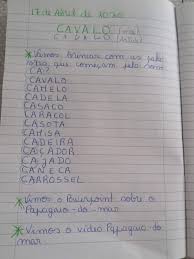 17 de Abril de 2020
CAVALO
CAVALO
* Vamos brincar com as pala
que começam pelo som
CA?
CAVALO
CAMELO
CADELA
CASACO
CARACOL
CASOTA
CAMISA
CADEIRA
CAÇADOR
CAJADO
CANELA
CARROSSEL
* Vimos o Powerpoint sobre o
Papagaio-do mar
* Vimos o vídeo Papagaio-do
mar